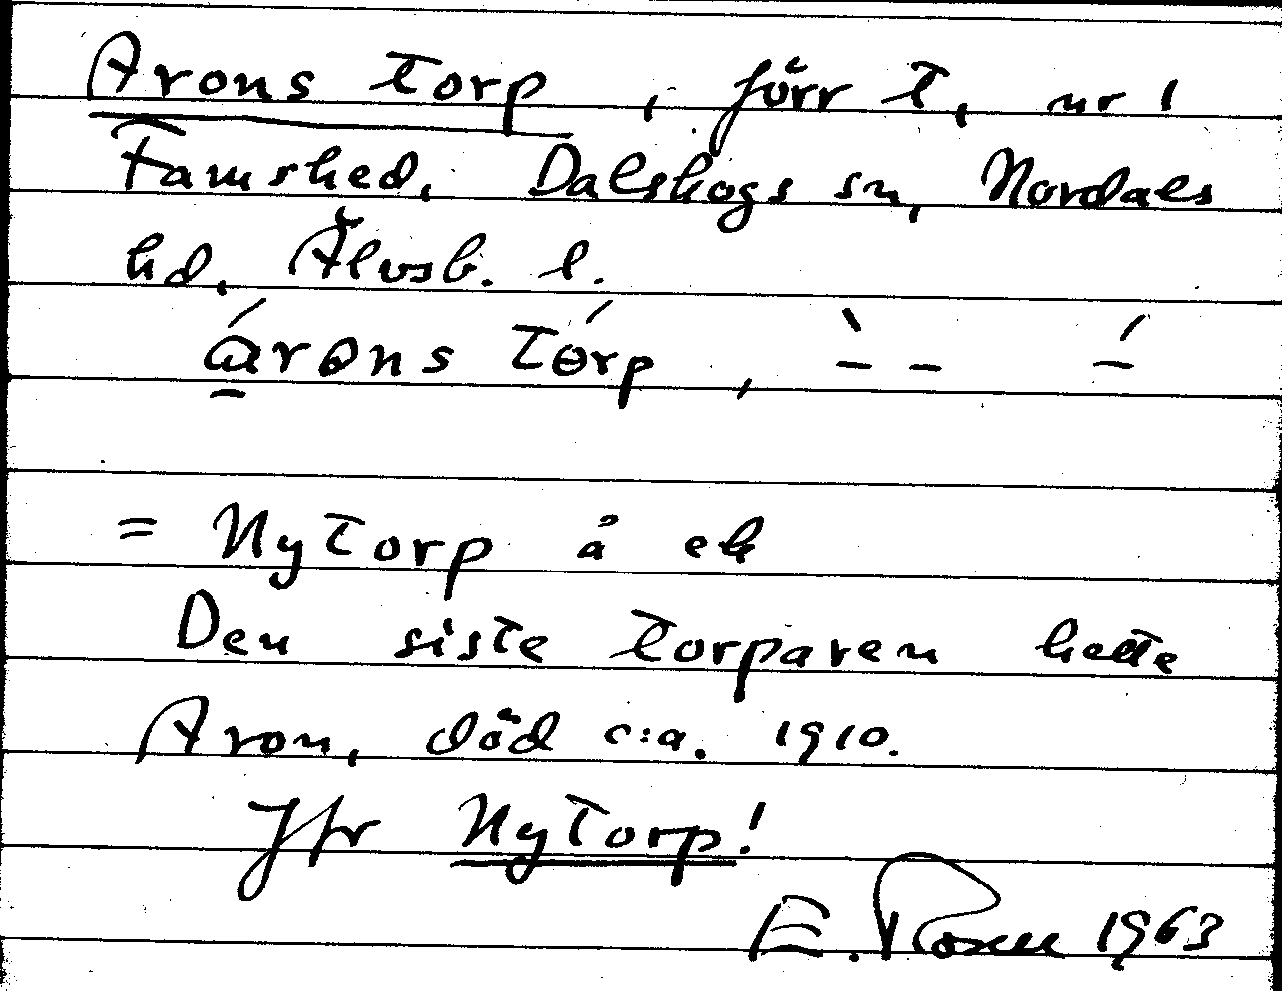 Arons torp, förr t, nr 1
Famshed, Dalskogs sn, Nordals
hd, Älvsb. l.
árɵns tɵ́rp, ̀– – ́–
= Nytorp å ek
Den siste torparen hette
Aron, död c:a. 1910.
Jfr Nytorp!
E. Rosell 1963